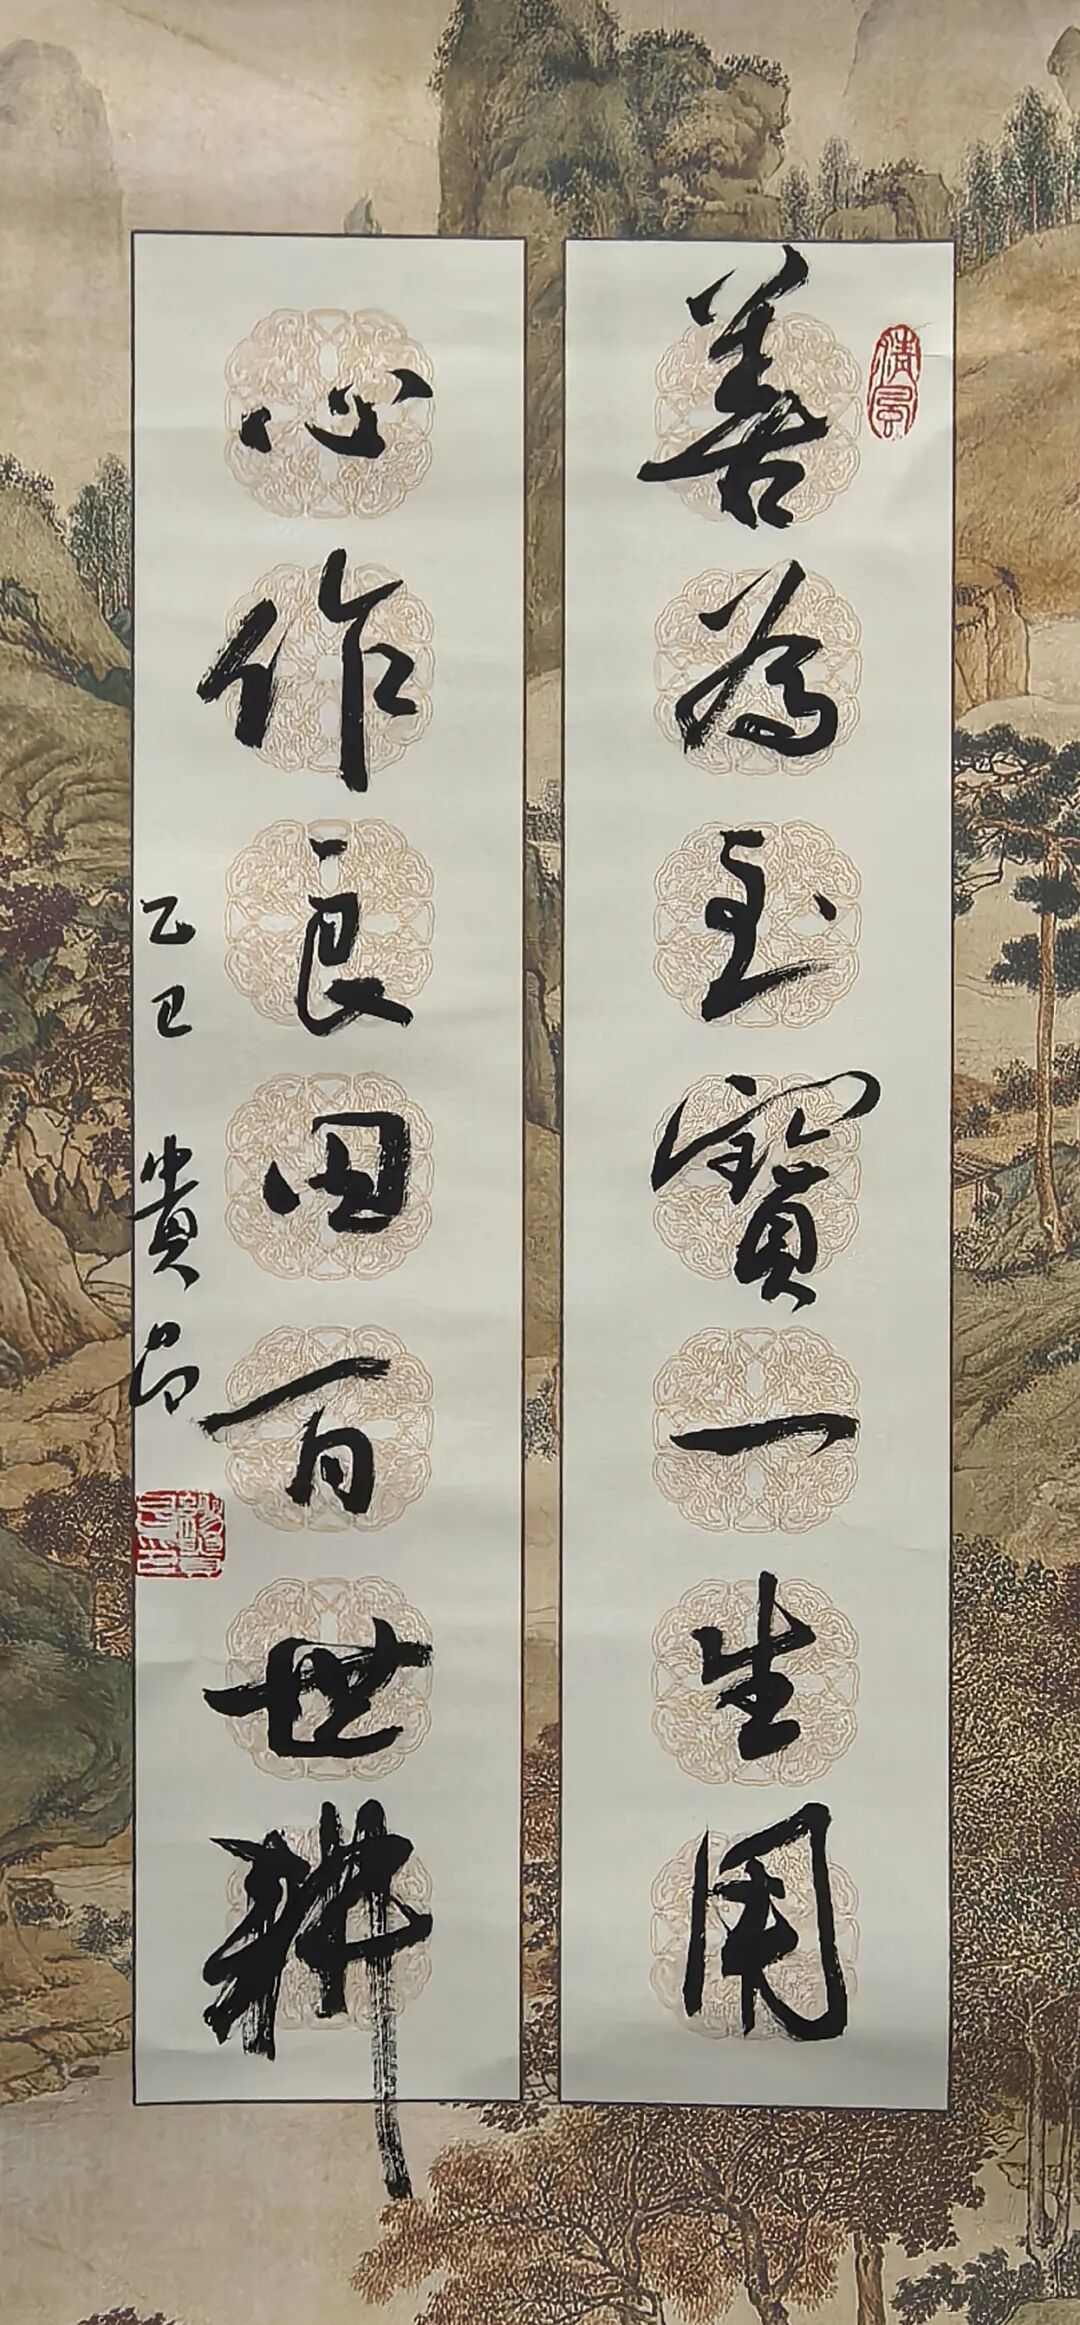 善為至寶一生用
心作良田百世耕
乙巳 貴
清風